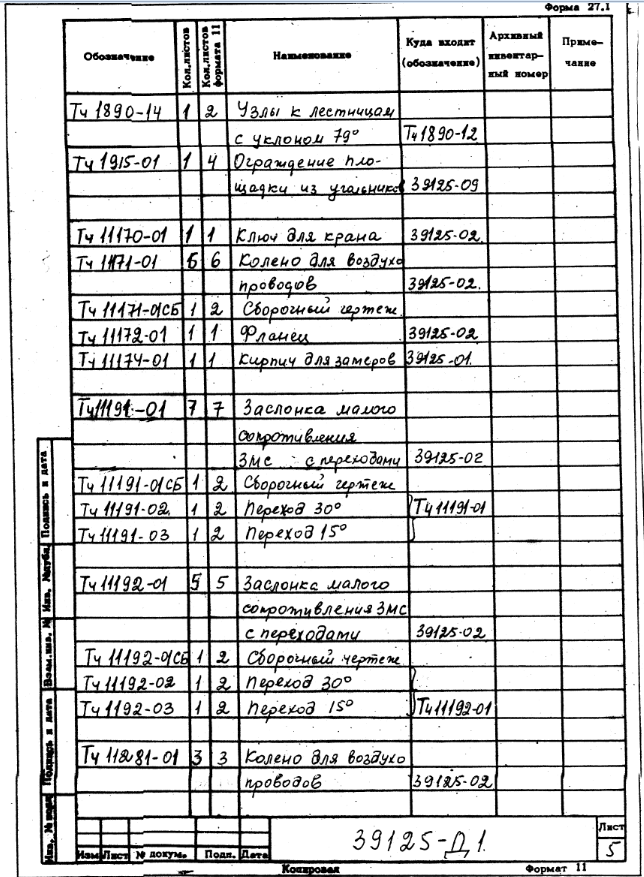 Форма 27.1
Обозначение Кол.листов Кол.листов формата 11 Наименование Куда входит (обозначение) Архивный инвентар-ный номер Приме-чание
Тч 1890-14 1 2 Узлы к лестницам
с уклоном 79° Тч1890-12
Тч 1915-01 1 4 Ограждение пло-
щадки из угольников 39125-09
Тч 11170-01 1 1 Ключ для крана 39125-02.
Тч 11171-01 6 6 Колено для воздухо
проводов 39125-02.
Тч 11171-01СБ 1 2 Сборочный чертеж.
Тч 11172-01 1 1 Фланец 39125-02
Тч 11174-01 1 1 Кирпич для замеров 39125-01.
Тч11191-01 7 7 Заслонка малого
сопротивления
ЗМС с переходами 39125-02
Тч 11191-01СБ 1 2 Сборочный чертеж
Тч 11191-02. 1 2 Переход 30° Тч 11191-01
Тч 11191-03 1 2 Переход 15°
Тч 11192-01 5 5 Заслонка малого
сопротивления ЗМС
с переходами 39125-02
Тч 11192-01СБ 1 2 Сборочный чертеж
Тч 11192-02 1 2 Переход 30°
Тч 11192-03 1 2 Переход 15° Тч11192-01
Тч 11281-01 3 3 Колено для воздухо
проводов 39125-02
Инв. № подл. Подпись и дата Взам.инв. № Инв. №дубл. Подпись и дата
Изм Лист № докум. Подп. Дата
39125-Д1.
Лист
5
Копировал Формат 11